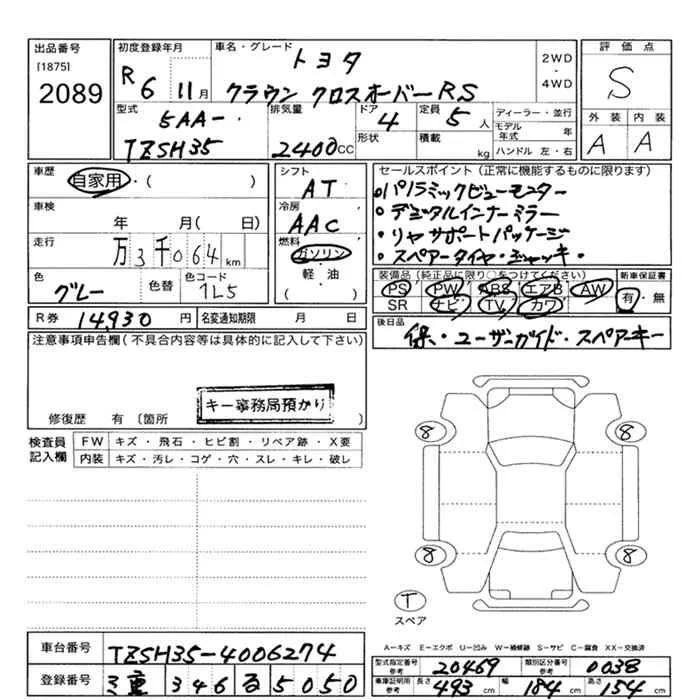 出品番号 初度登録年月 車名・グレード トヨタ 2WD・4WD 評価点
[1875] 2089 R6 11月 クラウン クロスオーバーRS S
型式 5AA- 排気量 ドア 4 定員 5人 ディーラー・並行 外装 内装
TZSH35 2400CC 形状 積載 kg モデル年式 年 A A
ハンドル 左・右
車歴 自家用・( ) シフト AT セールスポイント(正常に機能するものに限ります)
車検 年 月( 日) 冷房 AAC ・パノラミックビューモニター
・デジタルインナーミラー
走行 万3千064km 燃料 ガソリン ・リヤサポートパッケージ
軽・油 ・スペアータイヤ・ジャッキ・
色 グレー 色替 色コード 1L5 ( ) 装備品(純正品に限り○をつけてください) 新車保証書
PS PW ABS エアB AW 有・無
SR ナビ TV カワ
R券 14,930円 名変通知期限 月 日 後日品
保・ユーザーガイド・スペアーキー
注意事項申告欄(不具合内容等は具体的に記入して下さい)
キー事務局預かり
修復歴 有〔箇所 〕
検査員記入欄 FW キズ・飛石・ヒビ割・リペア跡・X要
内装 キズ・汚レ・コゲ・穴・スレ・キレ・破レ
8 8
8 8
T
スペア
A=キズ E=エクボ U=凹み W=補修跡 S=サビ C=腐食 XX=交換済
車台番号 TZSH35-4006274
型式指定番号 参考 20469 類別区分番号 参考 0038
登録番号 三重 346 る 5050
車庫証明用 参考 長さ 493cm 幅 184cm 高さ 154cm